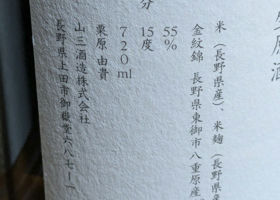 原酒
米(長野県産)、米麹(長野県産
金紋錦 長野県東御市八重原産
分
55%
15度
720ml
栗原由貴
山三酒造株式会社
長野県上田市御嶽堂六八七ー一